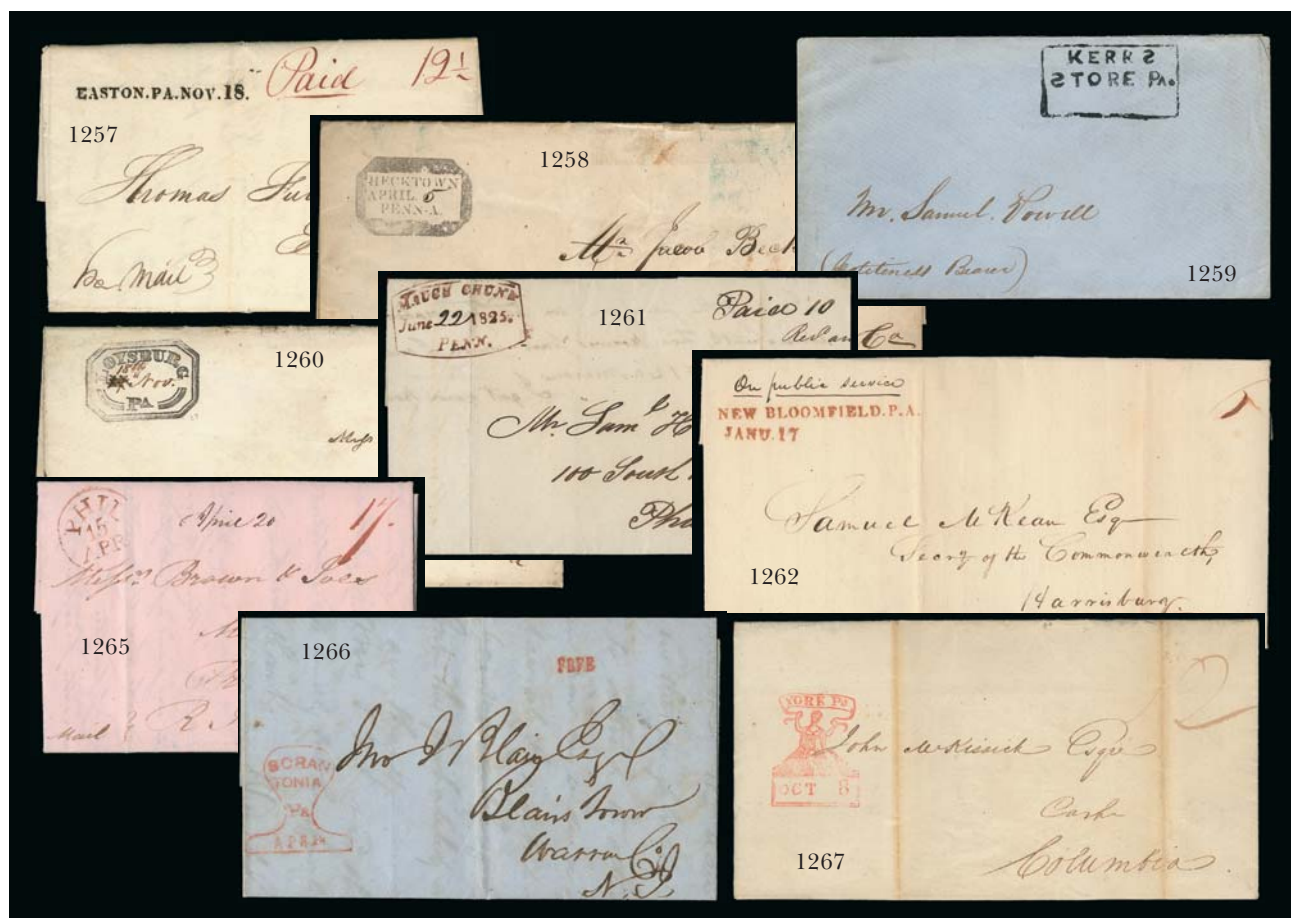 EASTON.PA.NOV.18. Paid 12½
1257
Thomas
Mail
1258
HECKTOWN
APRIL. 5
PENN-A.
Mr. Jacob
KERRS
STORE PA.
Mr. Samuel
(Politeness Bearer)
1259
1260
18th
Nov.
PA
Messrs
1261
MAUCH CHUNK
June 22 1825.
PENN.
Paid 10
Mr. Saml H
100 South
Ph
On public service
NEW BLOOMFIELD.P.A.
JANU.17
Samuel McKean Esq
Secry of the Commonwealth,
1262
Harrisburg.
PHIL
15
APR
April 20
17.
Messrs Brown & Ives
1265
R
Mail
1266
FREE
Jno I Blair Esq
Blairstown
Warren Co
N.J
SCRAN
TONIA
Pa
YORK Pa
OCT 8
John McKissick Esqr
Cashr
1267
Columbia